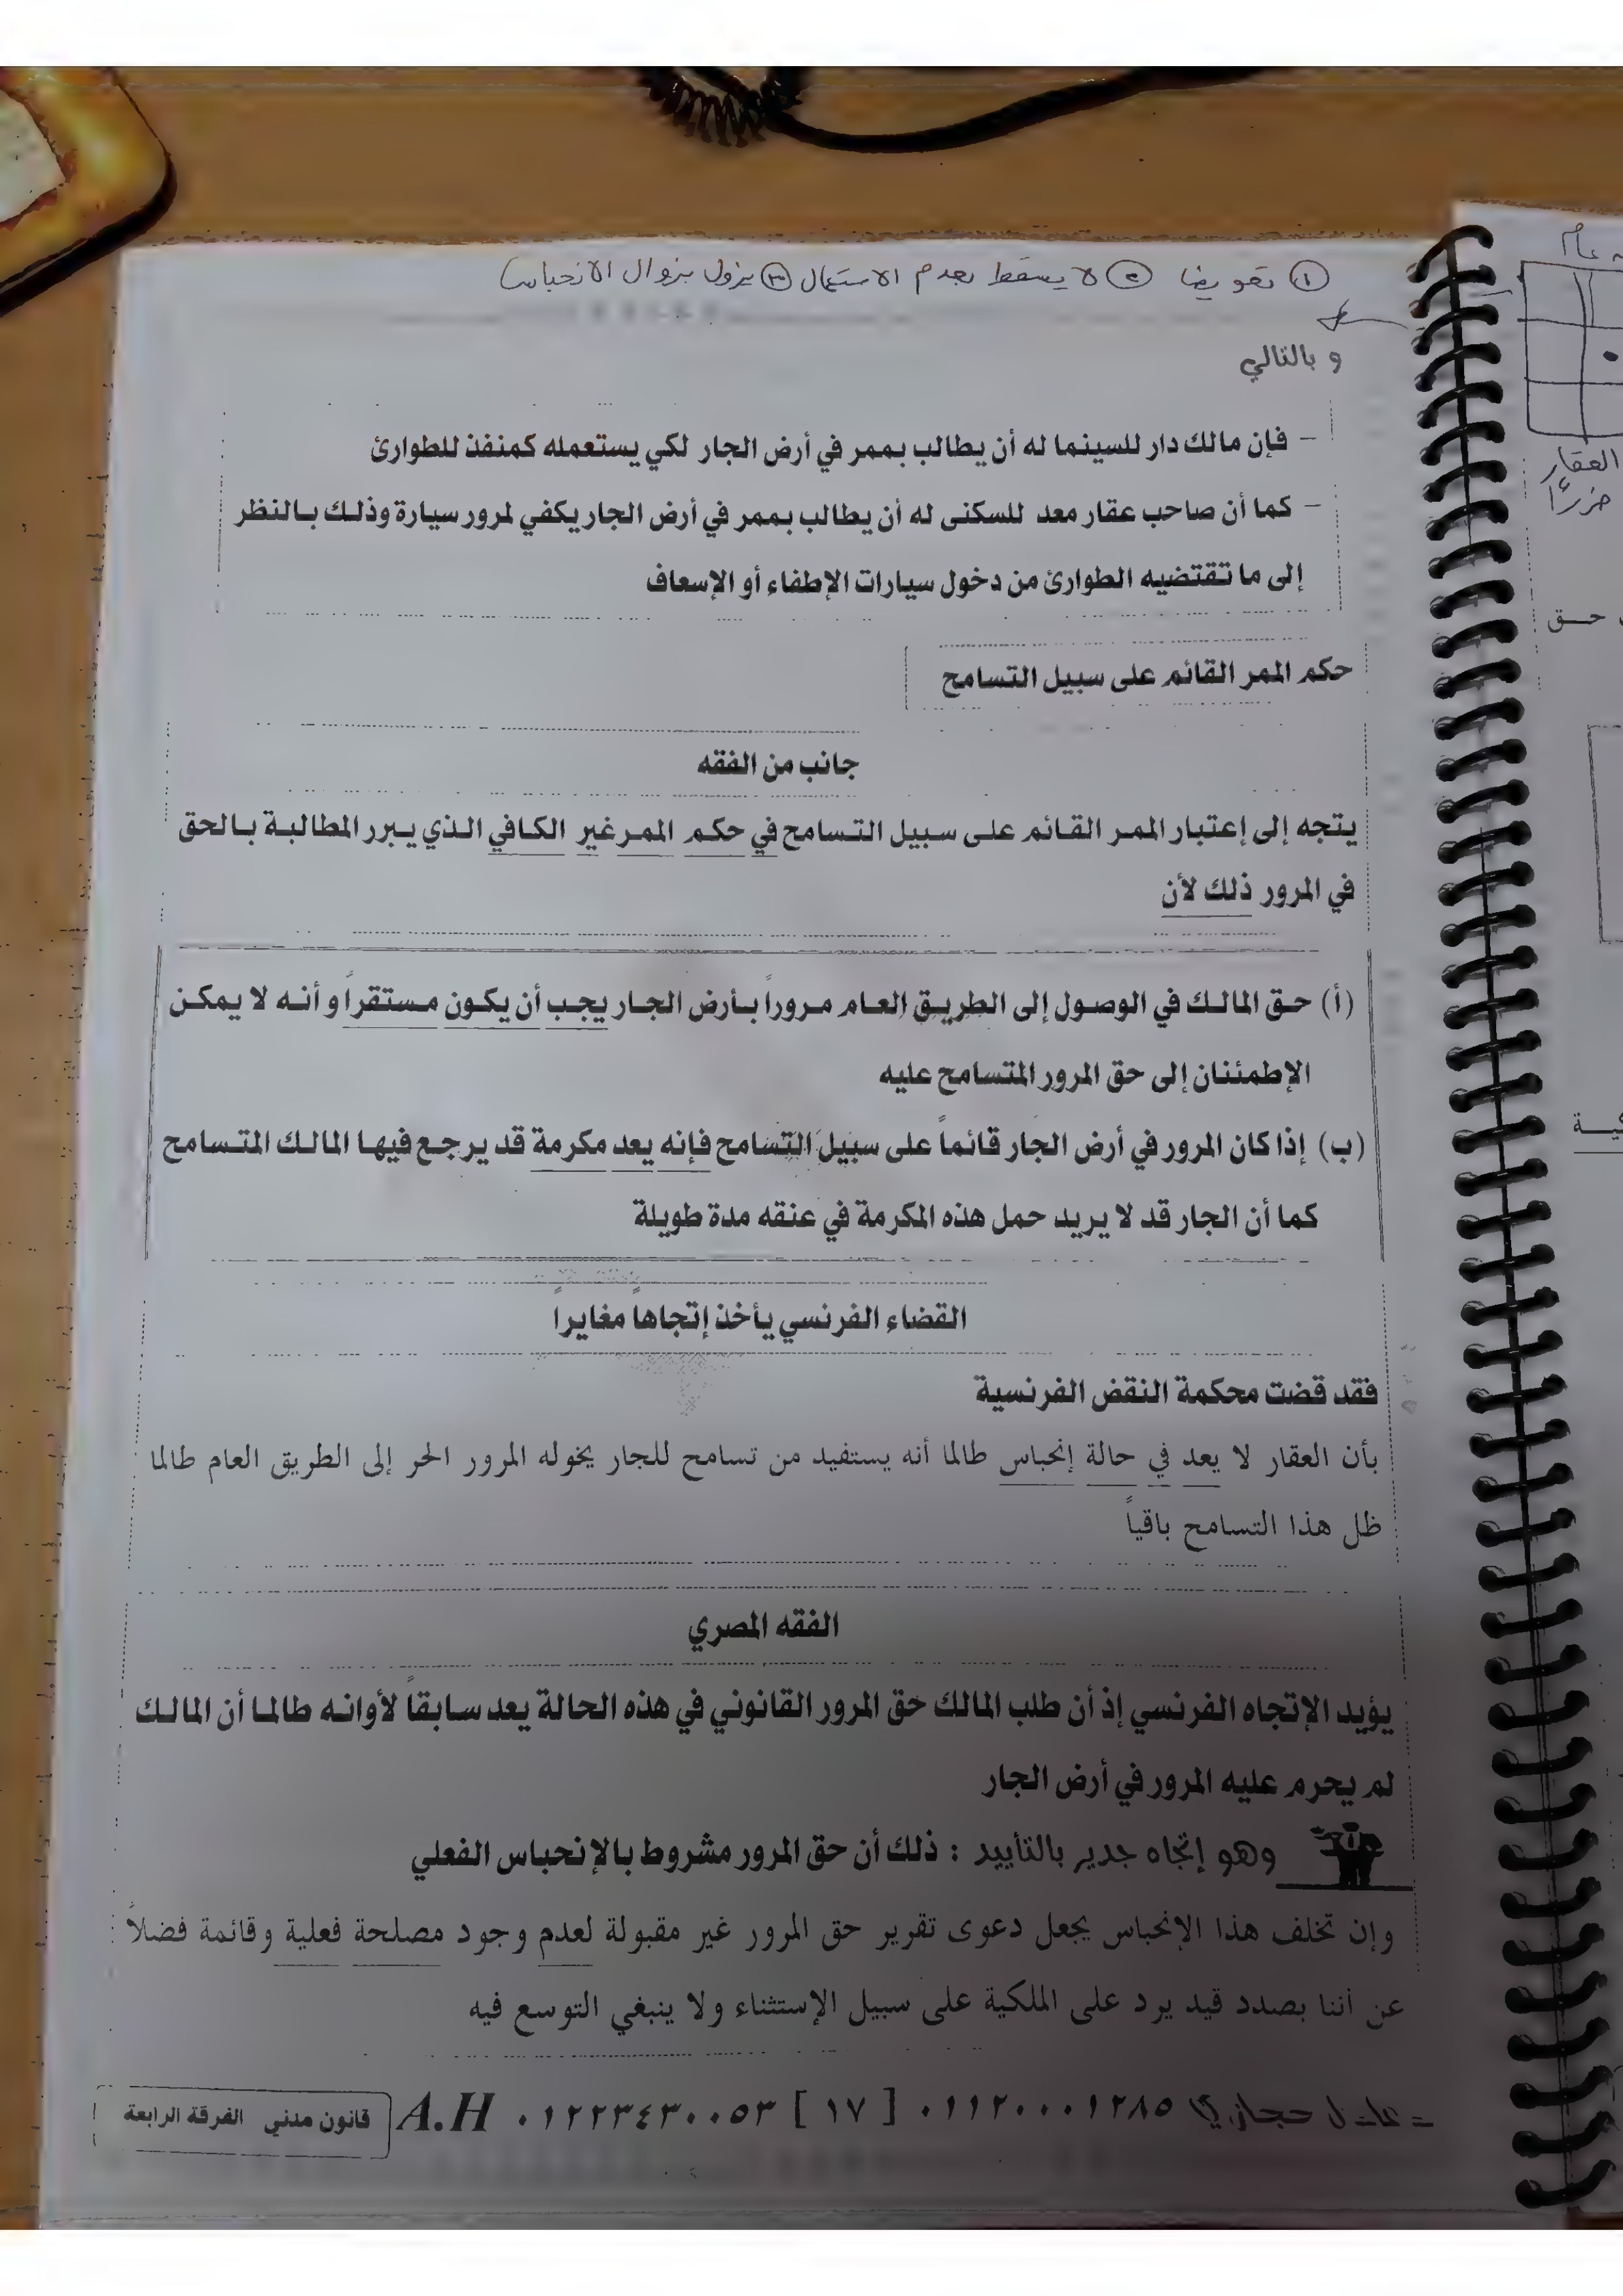 ① تعويضا ② لا يسقط بعدم الاستعمال ③ يزول بزوال الانحباس
و بالتالي
– فإن مالك دار للسينما له أن يطالب بممر في أرض الجار لكي يستعمله كمنفذ للطوارئ
– كما أن صاحب عقار معد للسكنى له أن يطالب بممر في أرض الجار يكفي لمرور سيارة وذلك بالنظر
إلى ما تقتضيه الطوارئ من دخول سيارات الإطفاء أو الإسعاف
حكم الممر القائم على سبيل التسامح
جانب من الفقه
يتجه إلى إعتبار الممر القائم على سبيل التسامح في حكم الممر غير الكافي الذي يبرر المطالبة بالحق
في المرور ذلك لأن
(أ) حق المالك في الوصول إلى الطريق العام مروراً بأرض الجار يجب أن يكون مستقراً و أنه لا يمكن
الإطمئنان إلى حق المرور المتسامح عليه
(ب) إذا كان المرور في أرض الجار قائماً على سبيل التسامح فإنه يعد مكرمة قد يرجع فيها المالك المتسامح
كما أن الجار قد لا يريد حمل هذه المكرمة في عنقه مدة طويلة
القضاء الفرنسي يأخذ إتجاهاً مغايراً
فقد قضت محكمة النقض الفرنسية
بأن العقار لا يعد في حالة إنحباس طالما أنه يستفيد من تسامح للجار يخوله المرور الحر إلى الطريق العام طالما
ظل هذا التسامح باقياً
الفقه المصري
يؤيد الإتجاه الفرنسي إذ أن طلب المالك حق المرور القانوني في هذه الحالة يعد سابقاً لأوانه طالما أن المالك
لم يحرم عليه المرور في أرض الجار
وهو إتجاه جدير بالتأييد : ذلك أن حق المرور مشروط بالإنحباس الفعلي
وإن تخلف هذا الإنحباس يجعل دعوى تقرير حق المرور غير مقبولة لعدم وجود مصلحة فعلية وقائمة فضلاً
عن أننا بصدد قيد يرد على الملكية على سبيل الإستثناء ولا ينبغي التوسع فيه
عادل حجازي ٠١١٢٠٠٠١٢٨٥ [ ١٧ ] ٠١٢٢٣٤٣٠٠٥٣ A.H قانون مدني الفرقة الرابعة
عام
العقار
حق